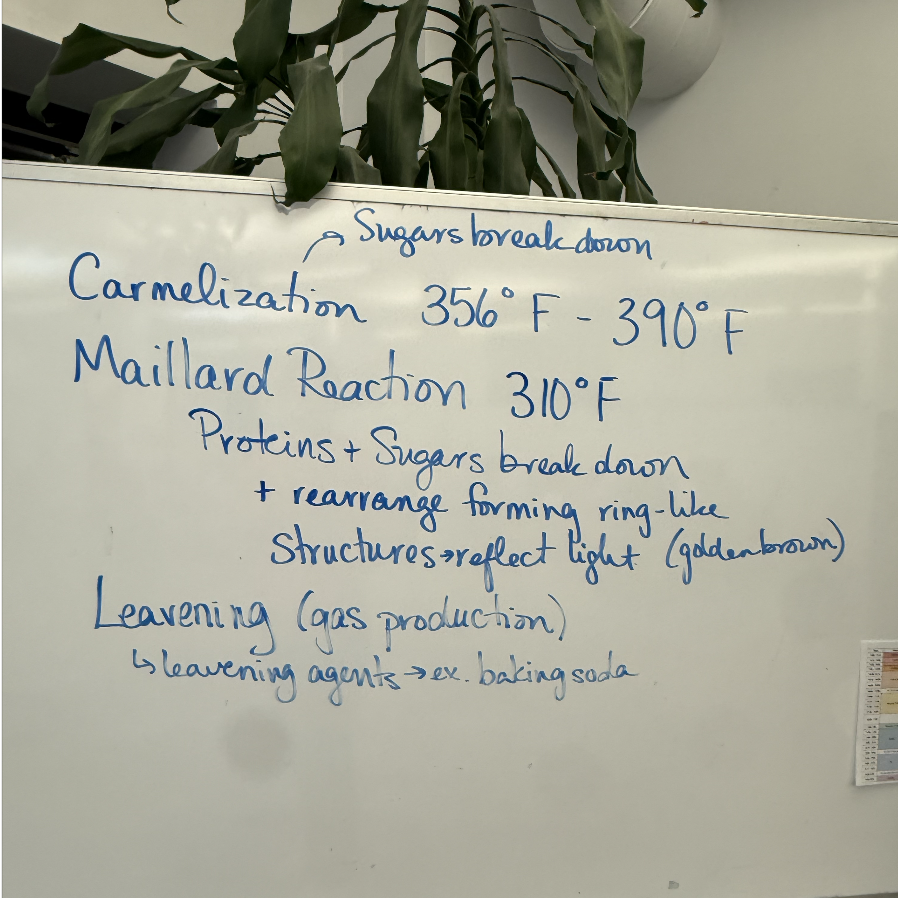 Sugars break down
Carmelization 356°F - 390°F
Maillard Reaction 310°F
Proteins + Sugars break down
+ rearrange forming ring-like
Structures→reflect light (golden brown)
Leavening (gas production)
↳ leavening agents → ex. baking soda